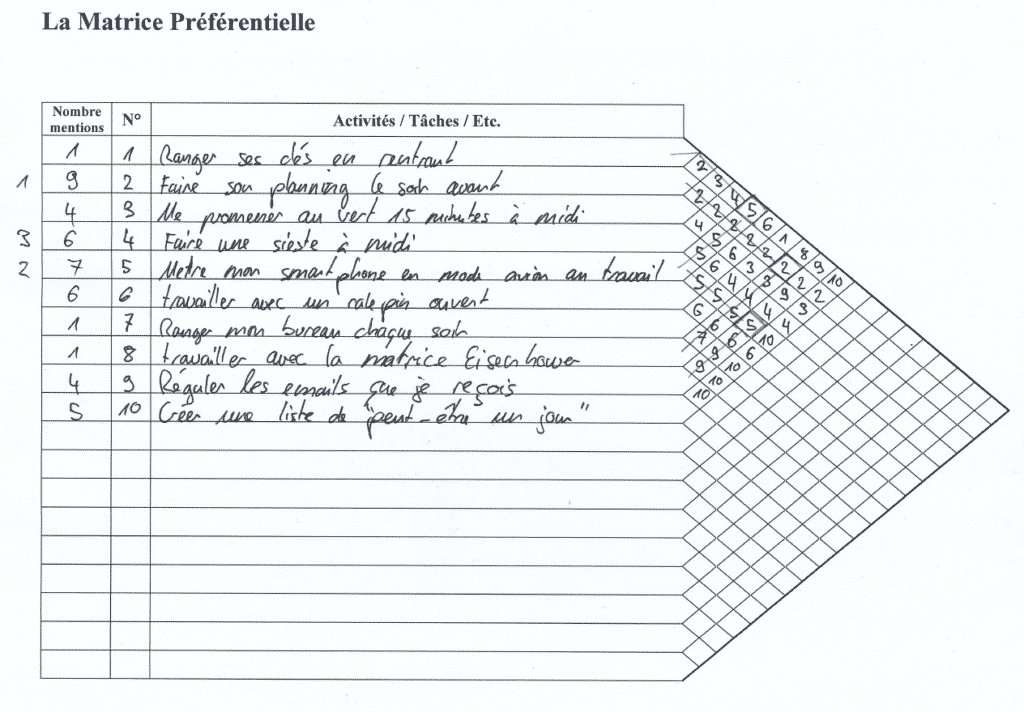 La Matrice Préférentielle
Nombre mentions N° Activités / Tâches / Etc.
1 1 Ranger ses clés en rentrant
1 9 2 Faire son planning le soir avant
4 3 Me promener au vert 15 minutes à midi
3 6 4 Faire une sieste à midi
2 7 5 Metre mon smartphone en mode avion au travail
6 6 travailler avec un calepin ouvert
1 7 Ranger mon bureau chaque soir
1 8 travailler avec la matrice Eisenhower
4 9 Réguler les emails que je reçois
5 10 Créer une liste de "peut-être un jour"
2 3 4 5 6 1 8 9 10
2 2 2 2 2 2 2 2
4 5 6 3 3 9 3
5 6 4 4 4 4
5 5 5 5 10
6 6 6 6
7 9 10
9 10
10